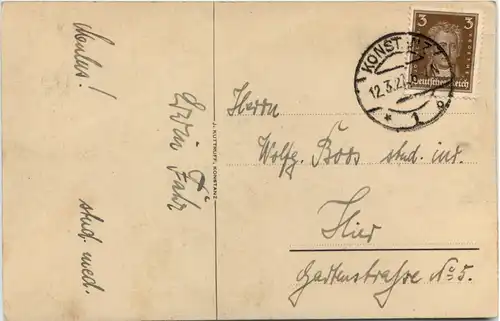 Servus!
Erwin Fahr
stud. med.
J. RUTTKOFF, KONSTANZ
3 3
Deutsches Reich
KONSTANZ
12.3.27
* 1 o
Herrn
Wolfg. Boos stud. iur.
Hier
Gartenstrasse No 5.